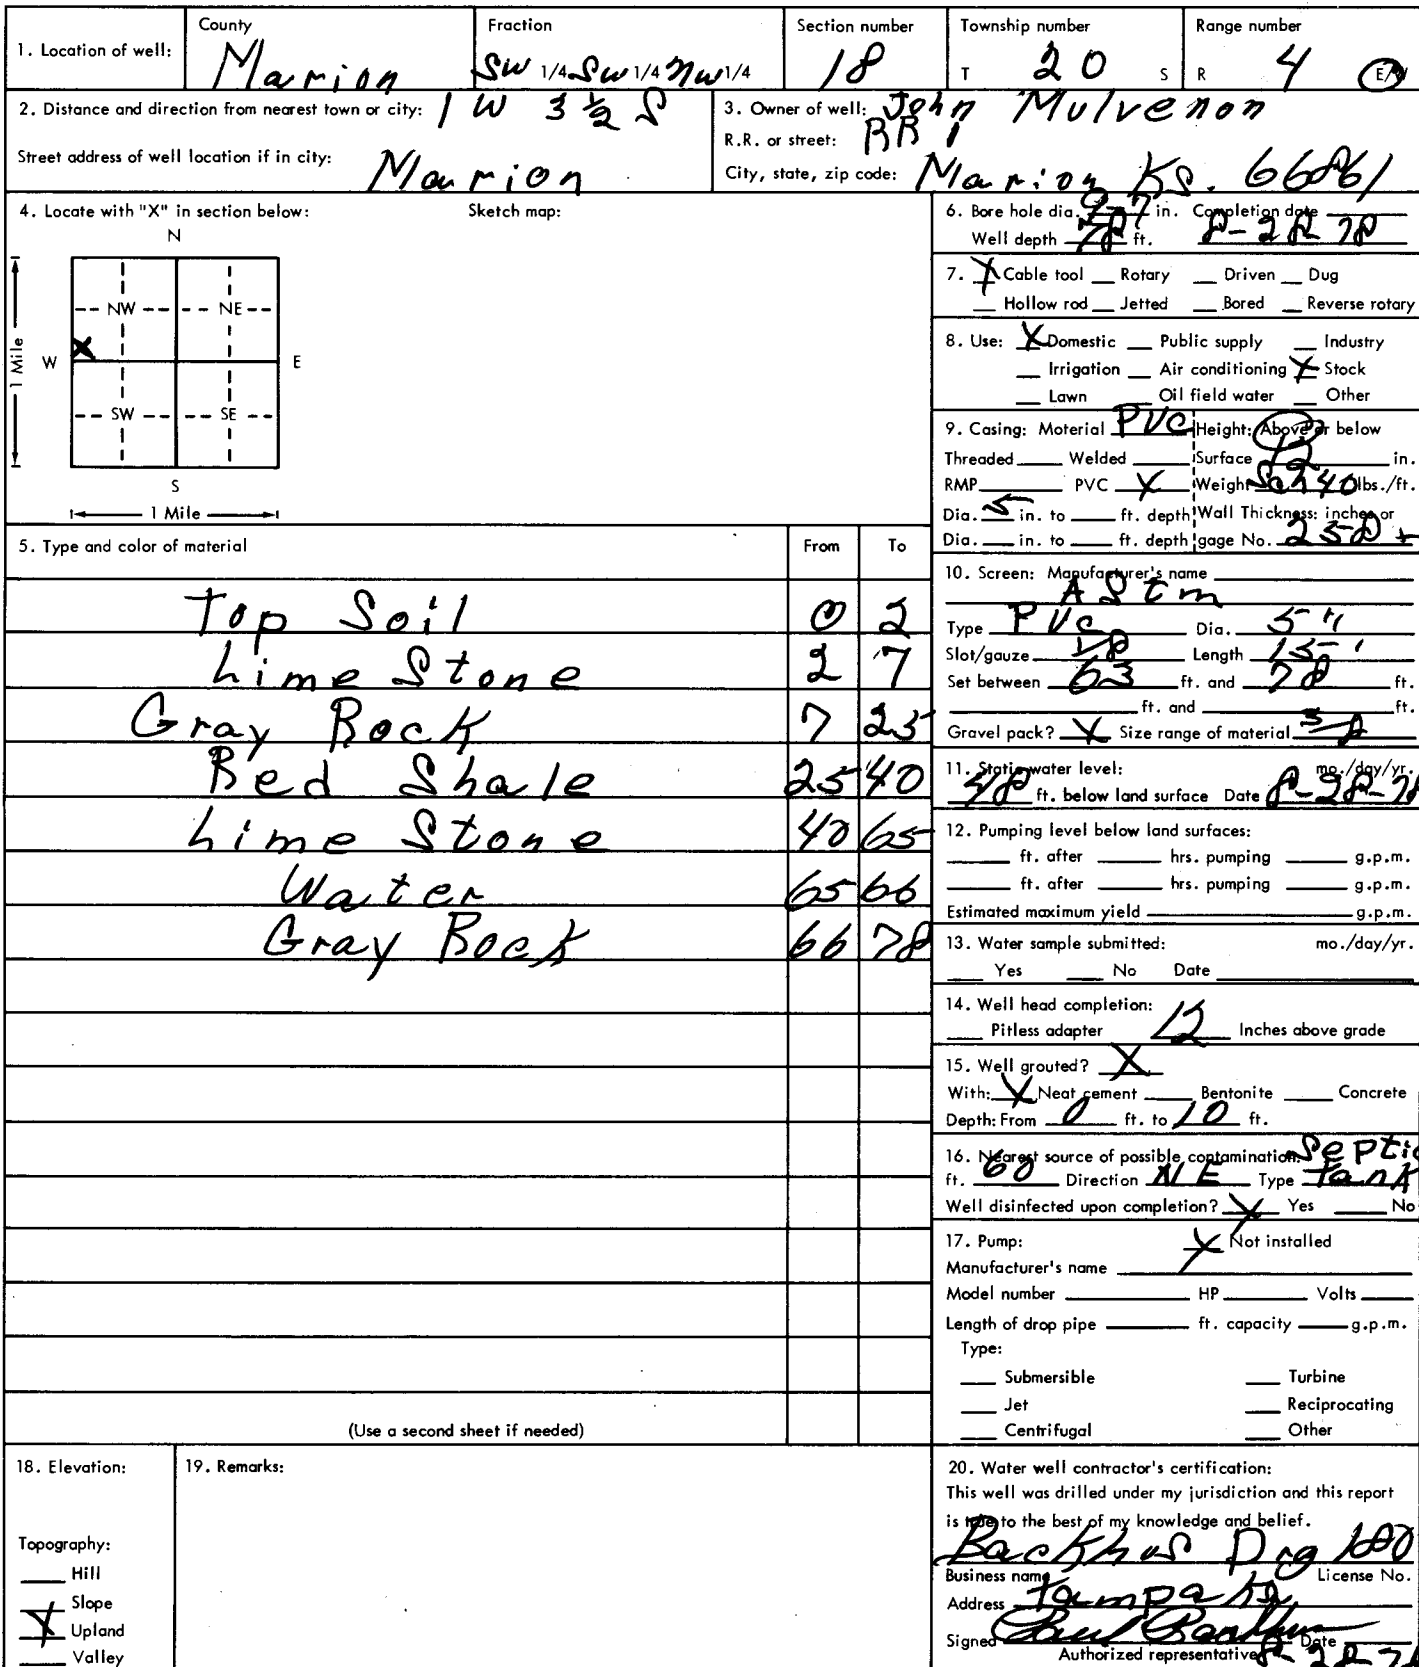 1. Location of well: County Marion Fraction SW 1/4 SW 1/4 NW 1/4 Section number 18 Township number T 20 S Range number R 4 E/W
2. Distance and direction from nearest town or city: 1 W 3 1/2 S
Street address of well location if in city: Marion
3. Owner of well: John Mulvenon
R.R. or street: RR 1
City, state, zip code: Marion Ks. 66861
4. Locate with "X" in section below: Sketch map:
N
NW NE
W X E
SW SE
S
1 Mile
1 Mile
5. Type and color of material From To
Top Soil 0 2
Lime Stone 2 7
Gray Rock 7 25
Red Shale 25 40
Lime Stone 40 65
Water 65 66
Gray Rock 66 78
(Use a second sheet if needed)
6. Bore hole dia. 9-7 in. Completion date
Well depth 78 ft. 8-28-78
7. X Cable tool Rotary Driven Dug
Hollow rod Jetted Bored Reverse rotary
8. Use: X Domestic Public supply Industry
Irrigation Air conditioning X Stock
Lawn Oil field water Other
9. Casing: Material PVC Height: Above or below
Threaded Welded Surface 12 in.
RMP PVC X Weight Sch 40 lbs./ft.
Dia. 5 in. to ft. depth Wall Thickness: inches or
Dia. in. to ft. depth gage No. 258 +
10. Screen: Manufacturer's name
ASTm
Type PVC Dia. 5"
Slot/gauze 1/8 Length 15'
Set between 63 ft. and 78 ft.
ft. and ft.
Gravel pack? X Size range of material
11. Static water level: mo./day/yr.
ft. below land surface Date 8-28-78
12. Pumping level below land surfaces:
ft. after hrs. pumping g.p.m.
ft. after hrs. pumping g.p.m.
Estimated maximum yield g.p.m.
13. Water sample submitted: mo./day/yr.
Yes No Date
14. Well head completion:
Pitless adapter 12 Inches above grade
15. Well grouted? X
With: X Neat cement Bentonite Concrete
Depth: From 0 ft. to 10 ft.
16. Nearest source of possible contamination: Septic
ft. 60 Direction NE Type Tank
Well disinfected upon completion? X Yes No
17. Pump: X Not installed
Manufacturer's name
Model number HP Volts
Length of drop pipe ft. capacity g.p.m.
Type:
Submersible Turbine
Jet Reciprocating
Centrifugal Other
18. Elevation:
Topography:
Hill
Slope
X Upland
Valley
19. Remarks:
20. Water well contractor's certification:
This well was drilled under my jurisdiction and this report
is true to the best of my knowledge and belief.
Backhus Drg 180
Business name License No.
Address Tampa Ks
Signed Paul Backhus Date
Authorized representative 8-28-78